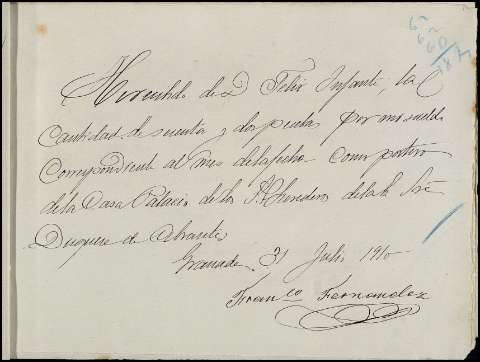 He recibido de D. Felix Infante, la
Cantidad de sesenta y dos pesetas por mi sueldo
Correspondiente al mes de la fecha como portero
de la Casa Palacio de los
Duquesa de Abrantes
Granada 31 Julio 1910
Franco Fernandez